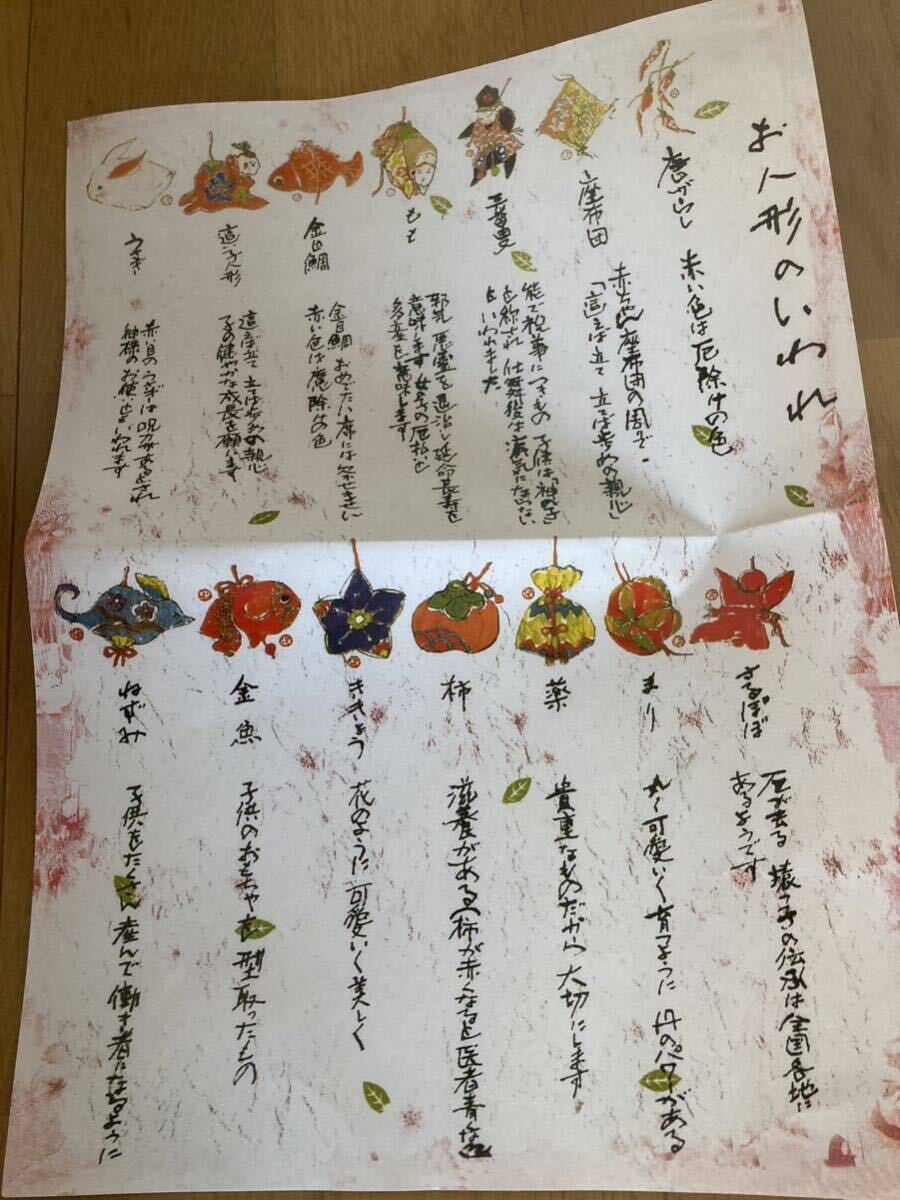 お人形のいわれ
唐がらし
赤い色は厄除けの色
座布団
赤ちゃん座布団の周りで
「這えば立て 立てば歩めの親心」
三番叟
能で祝事につきもの 子供は「神の子」
と称され 仕舞後は満気にならない
といわれました
もも
邪気 悪霊を退治し延命長寿を
意味します 女子の厄払いと
多産を意味します
金目鯛
金目鯛 おめでたい席には欠かせません
赤い色は魔除けの色
這い子人形
這えば立て 立てば歩めの親心
子の健やかな成長を願います
うさぎ
赤い目のうさぎは呪力があるとされ
神様のお使いといわれます
さるぼぼ
厄が去る 猿っ子の伝承は全国各地に
あるようです
まり
丸く可愛いく育つように 丹のパワーがある
薬
貴重なものだから 大切にします
柿
滋養がある(柿が赤くなると医者青くなる)
ききょう
花のように 可愛いく美しく
金魚
子供のおもちゃを型取ったもの
ねずみ
子供をたくさん産んで働き者になるように